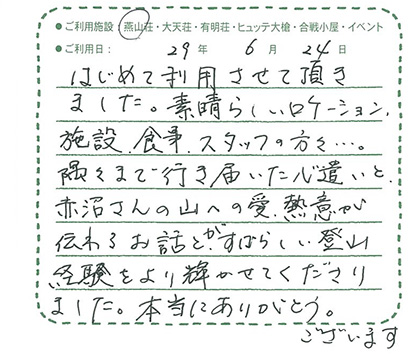 ●ご利用施設：燕山荘・大天荘・有明荘・ヒュッテ大槍・合戦小屋・イベント
●ご利用日： 29 年 6 月 24 日
はじめて利用させて頂き
ました。素晴らしいロケーション、
施設、食事、スタッフの方々…。
隅々まで行き届いた心遣いと、
赤沼さんの山への愛、熱意が
伝わるお話とがすばらしい登山
経験をより輝かせてくださり
ました。本当にありがとう。
ございます